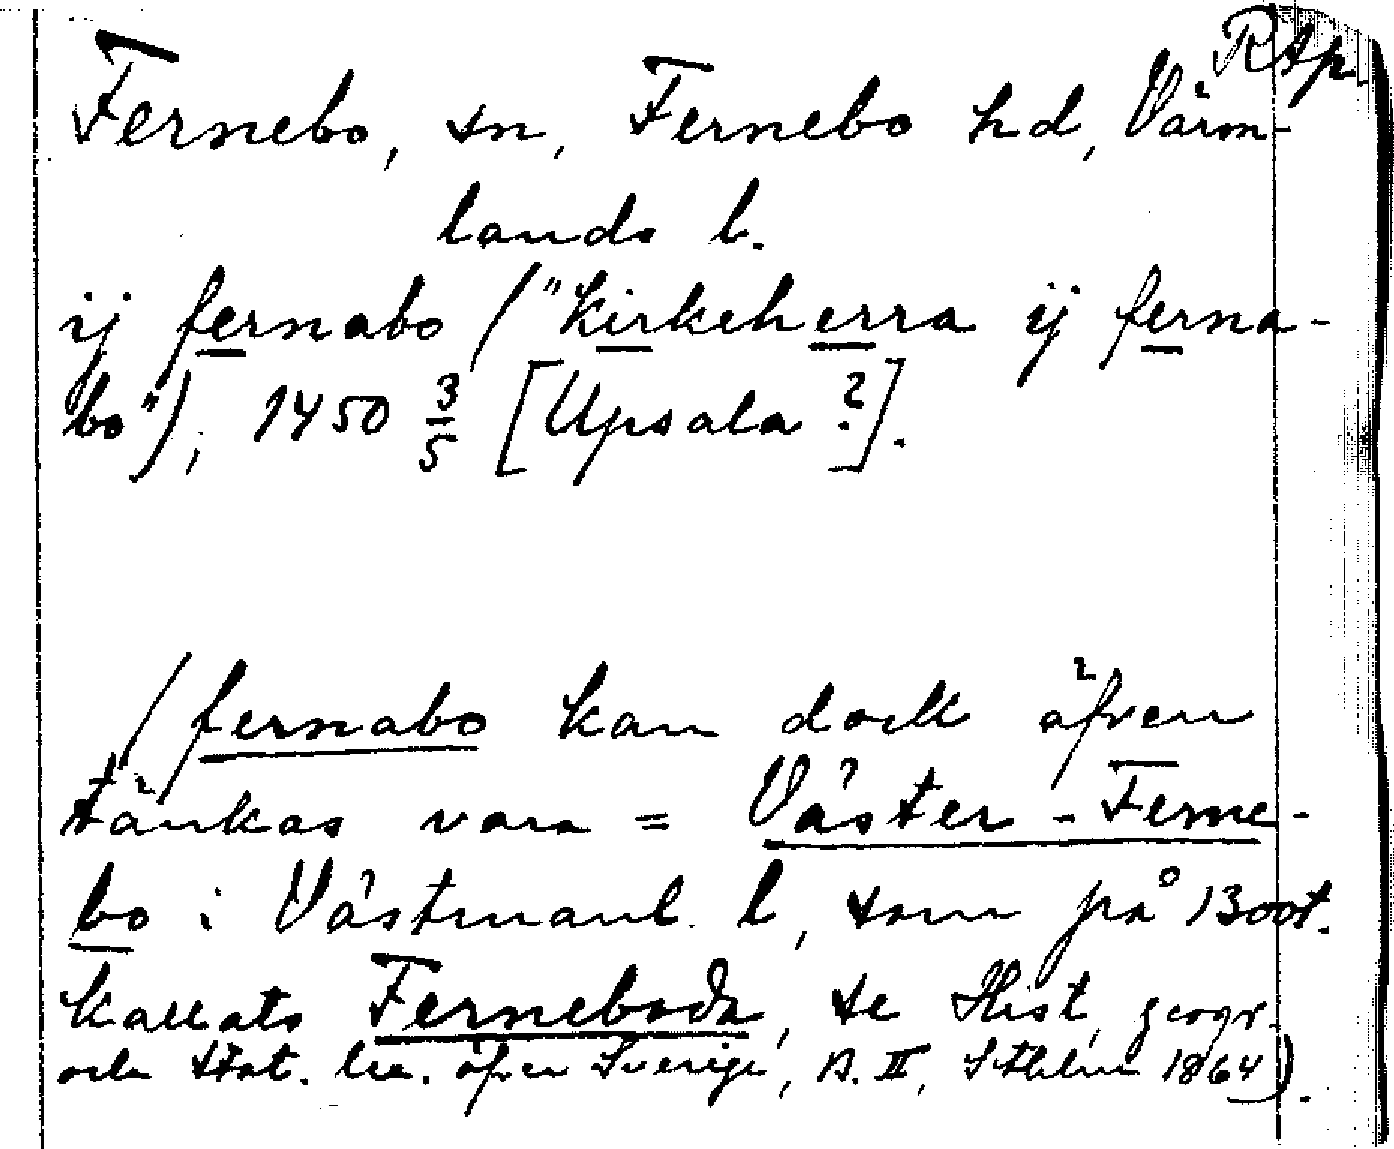 Rtp.
Fernebo, sn, Fernebo hd, Värm-
lands l.
ij fernabo ("kirkeherra ij ferna-
bo"), 1450 3/5 [Upsala?].
(fernabo kan dock äfven
tänkas vara = Väster-Ferne-
bo i Västmanl. l, som på 1300t.
kallats Ferneboda, se Hist, geogr.
och stat. lex. öfver Sverige, B. II, Sthlm 1864).